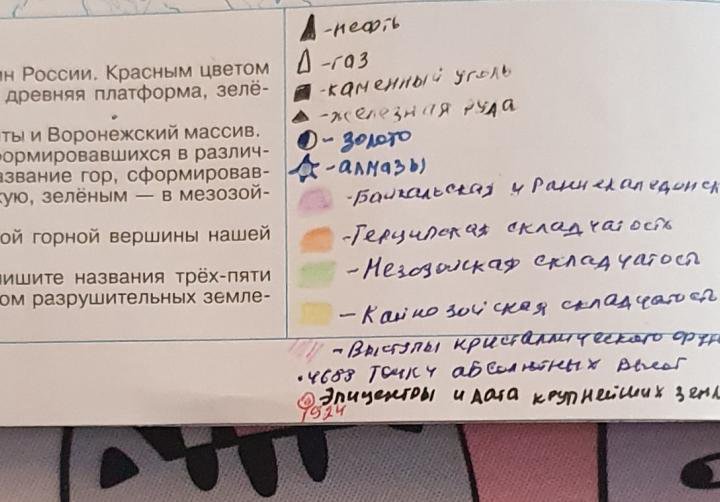 ин России. Красным цветом
древняя платформа, зелё-
ты и Воронежский массив.
формировавшихся в различ-
азвание гор, сформировав-
кую, зелёным — в мезозой-
ой горной вершины нашей
пишите названия трёх-пяти
ом разрушительных земле-
-нефть
-газ
-каменный уголь
-железная руда
- золото
-алмазы
-Байкальская и Раннекаледонск
-Герцинская складчатость
-Мезозойская складчатост
- Кайнозойская складчатост
-Выступы кристаллического фун
•4688 точки абсолютных высот
Эпицентры и дата крупнейших земл
1924